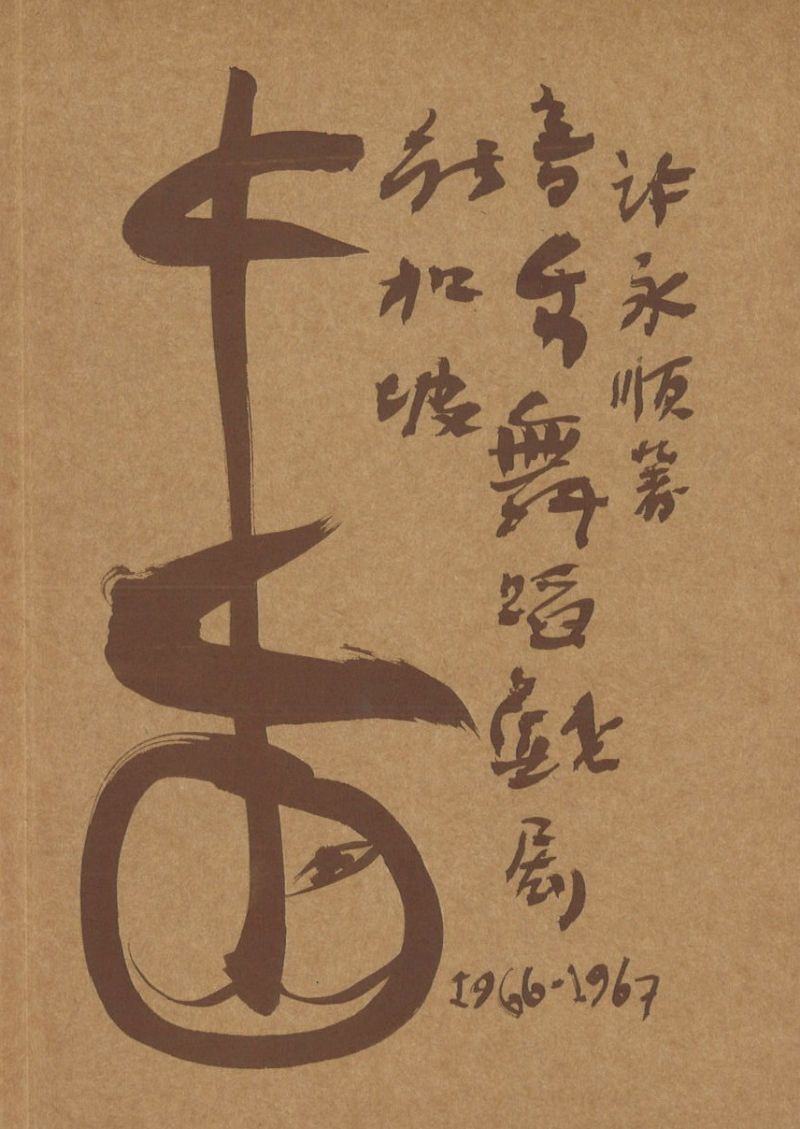 许永顺著
音乐舞蹈戯剧
新加坡
1966-1967